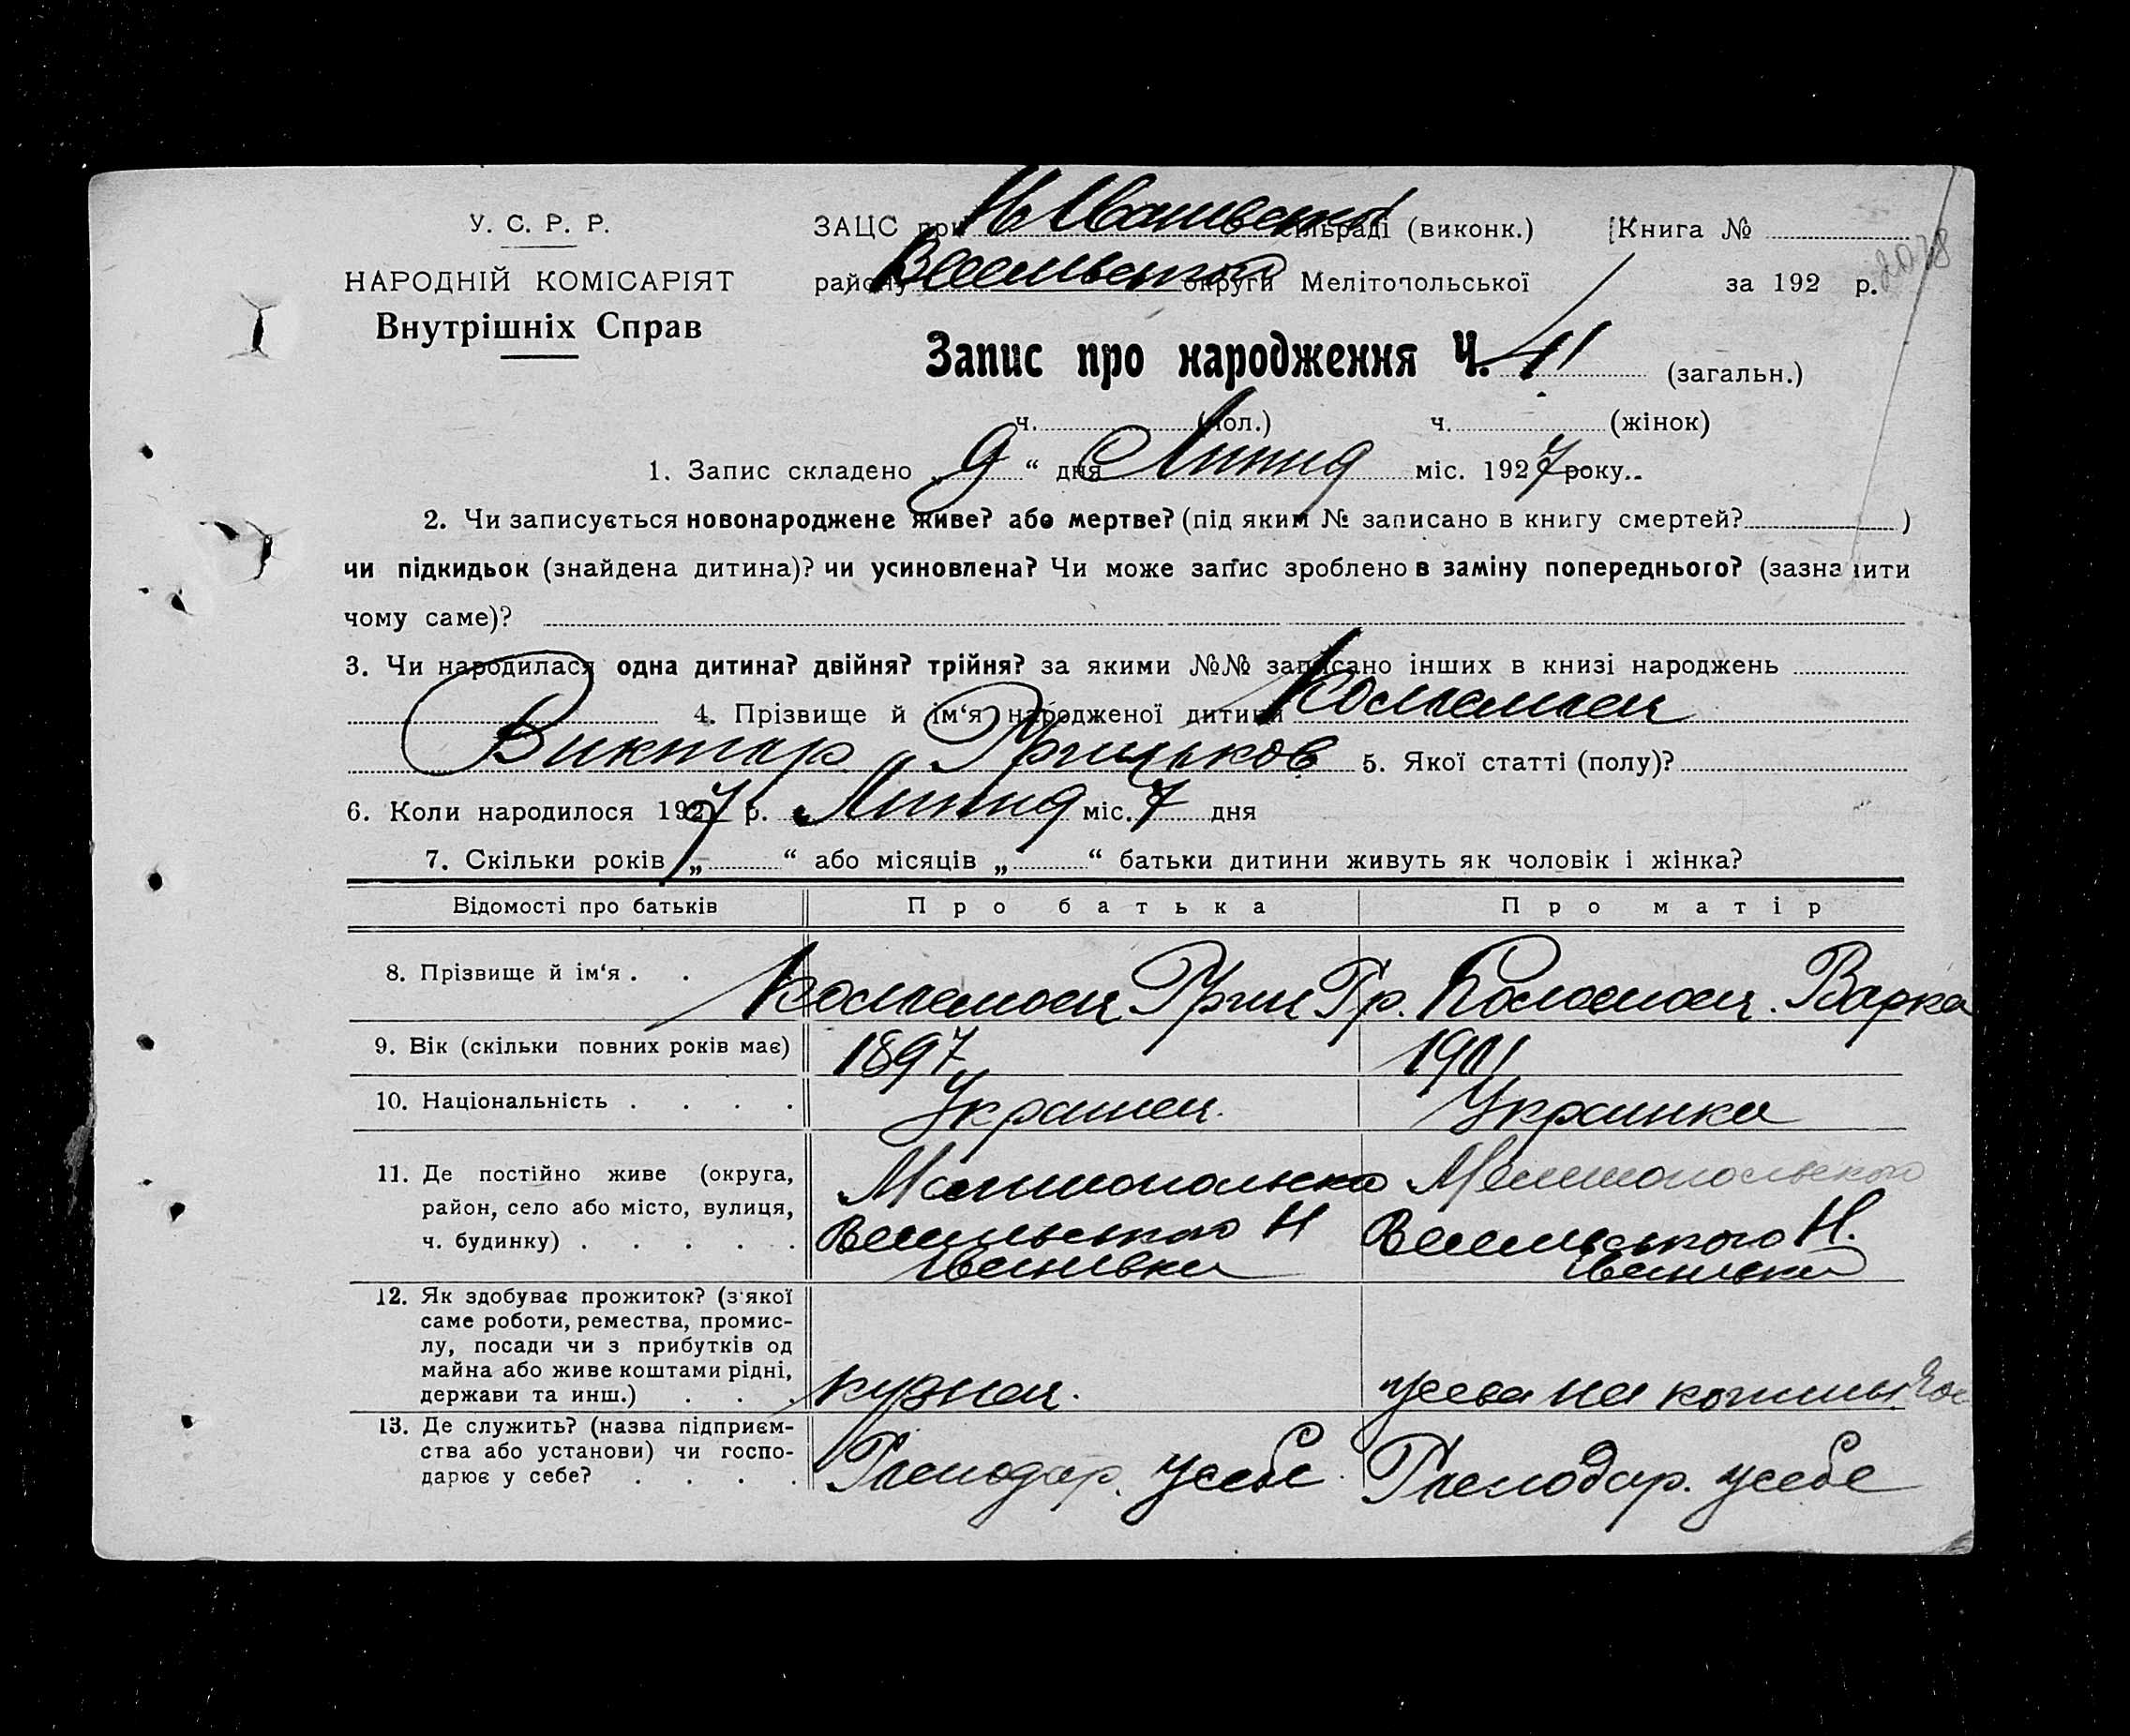 У. С. Р. Р.
НАРОДНІЙ КОМІСАРІЯТ
Внутрішніх Справ
ЗАЦС при Н Ивановской сільраді (виконк.) Книга №
району округи Мелітопольської за 192 р. 2078
Запис про народження Ч. 41 (загальн.)
ч. (пол.) ч. (жінок)
1. Запис складено „ 9 “ дня Липня міс. 1927 року..
2. Чи записується новонароджене живе? або мертве? (під яким № записано в книгу смертей? )
чи підкидьок (знайдена дитина)? чи усиновлена? Чи може запис зроблено в заміну попереднього? (зазначити
чому саме)?
3. Чи народилася одна дитина? двійня? трійня? за якими №№ записано інших в книзі народжень
4. Прізвище й ім‘я народженої дитини
Виктар 5. Якої статті (полу)?
6. Коли народилося 1927 р. Липня міс. 7 дня
7. Скільки років „ “ або місяців „ “ батьки дитини живуть як чоловік і жінка?
Відомості про батьків Про батька Про матір
8. Прізвище й ім‘я . . Гр. Варка
9. Вік (скільки повних років має) 1897 1901
10. Національність . . . . Украинец. Украинка
11. Де постійно живе (округа, Мелитопольско Мелитопольского
район, село або місто, вулиця, Весельского Н Весельського Н.
ч. будинку) . . . . . Ивановка Ивановка
12. Як здобуває прожиток? (з‘якої
саме роботи, ремества, промис-
лу, посади чи з прибутків од
майна або живе коштами рідні,
держави та инш.) . . . кузнец. на
13. Де служить? (назва підприєм-
ства або установи) чи госпо- Господар. усебе Господар. усебе
дарює у себе? . . . .